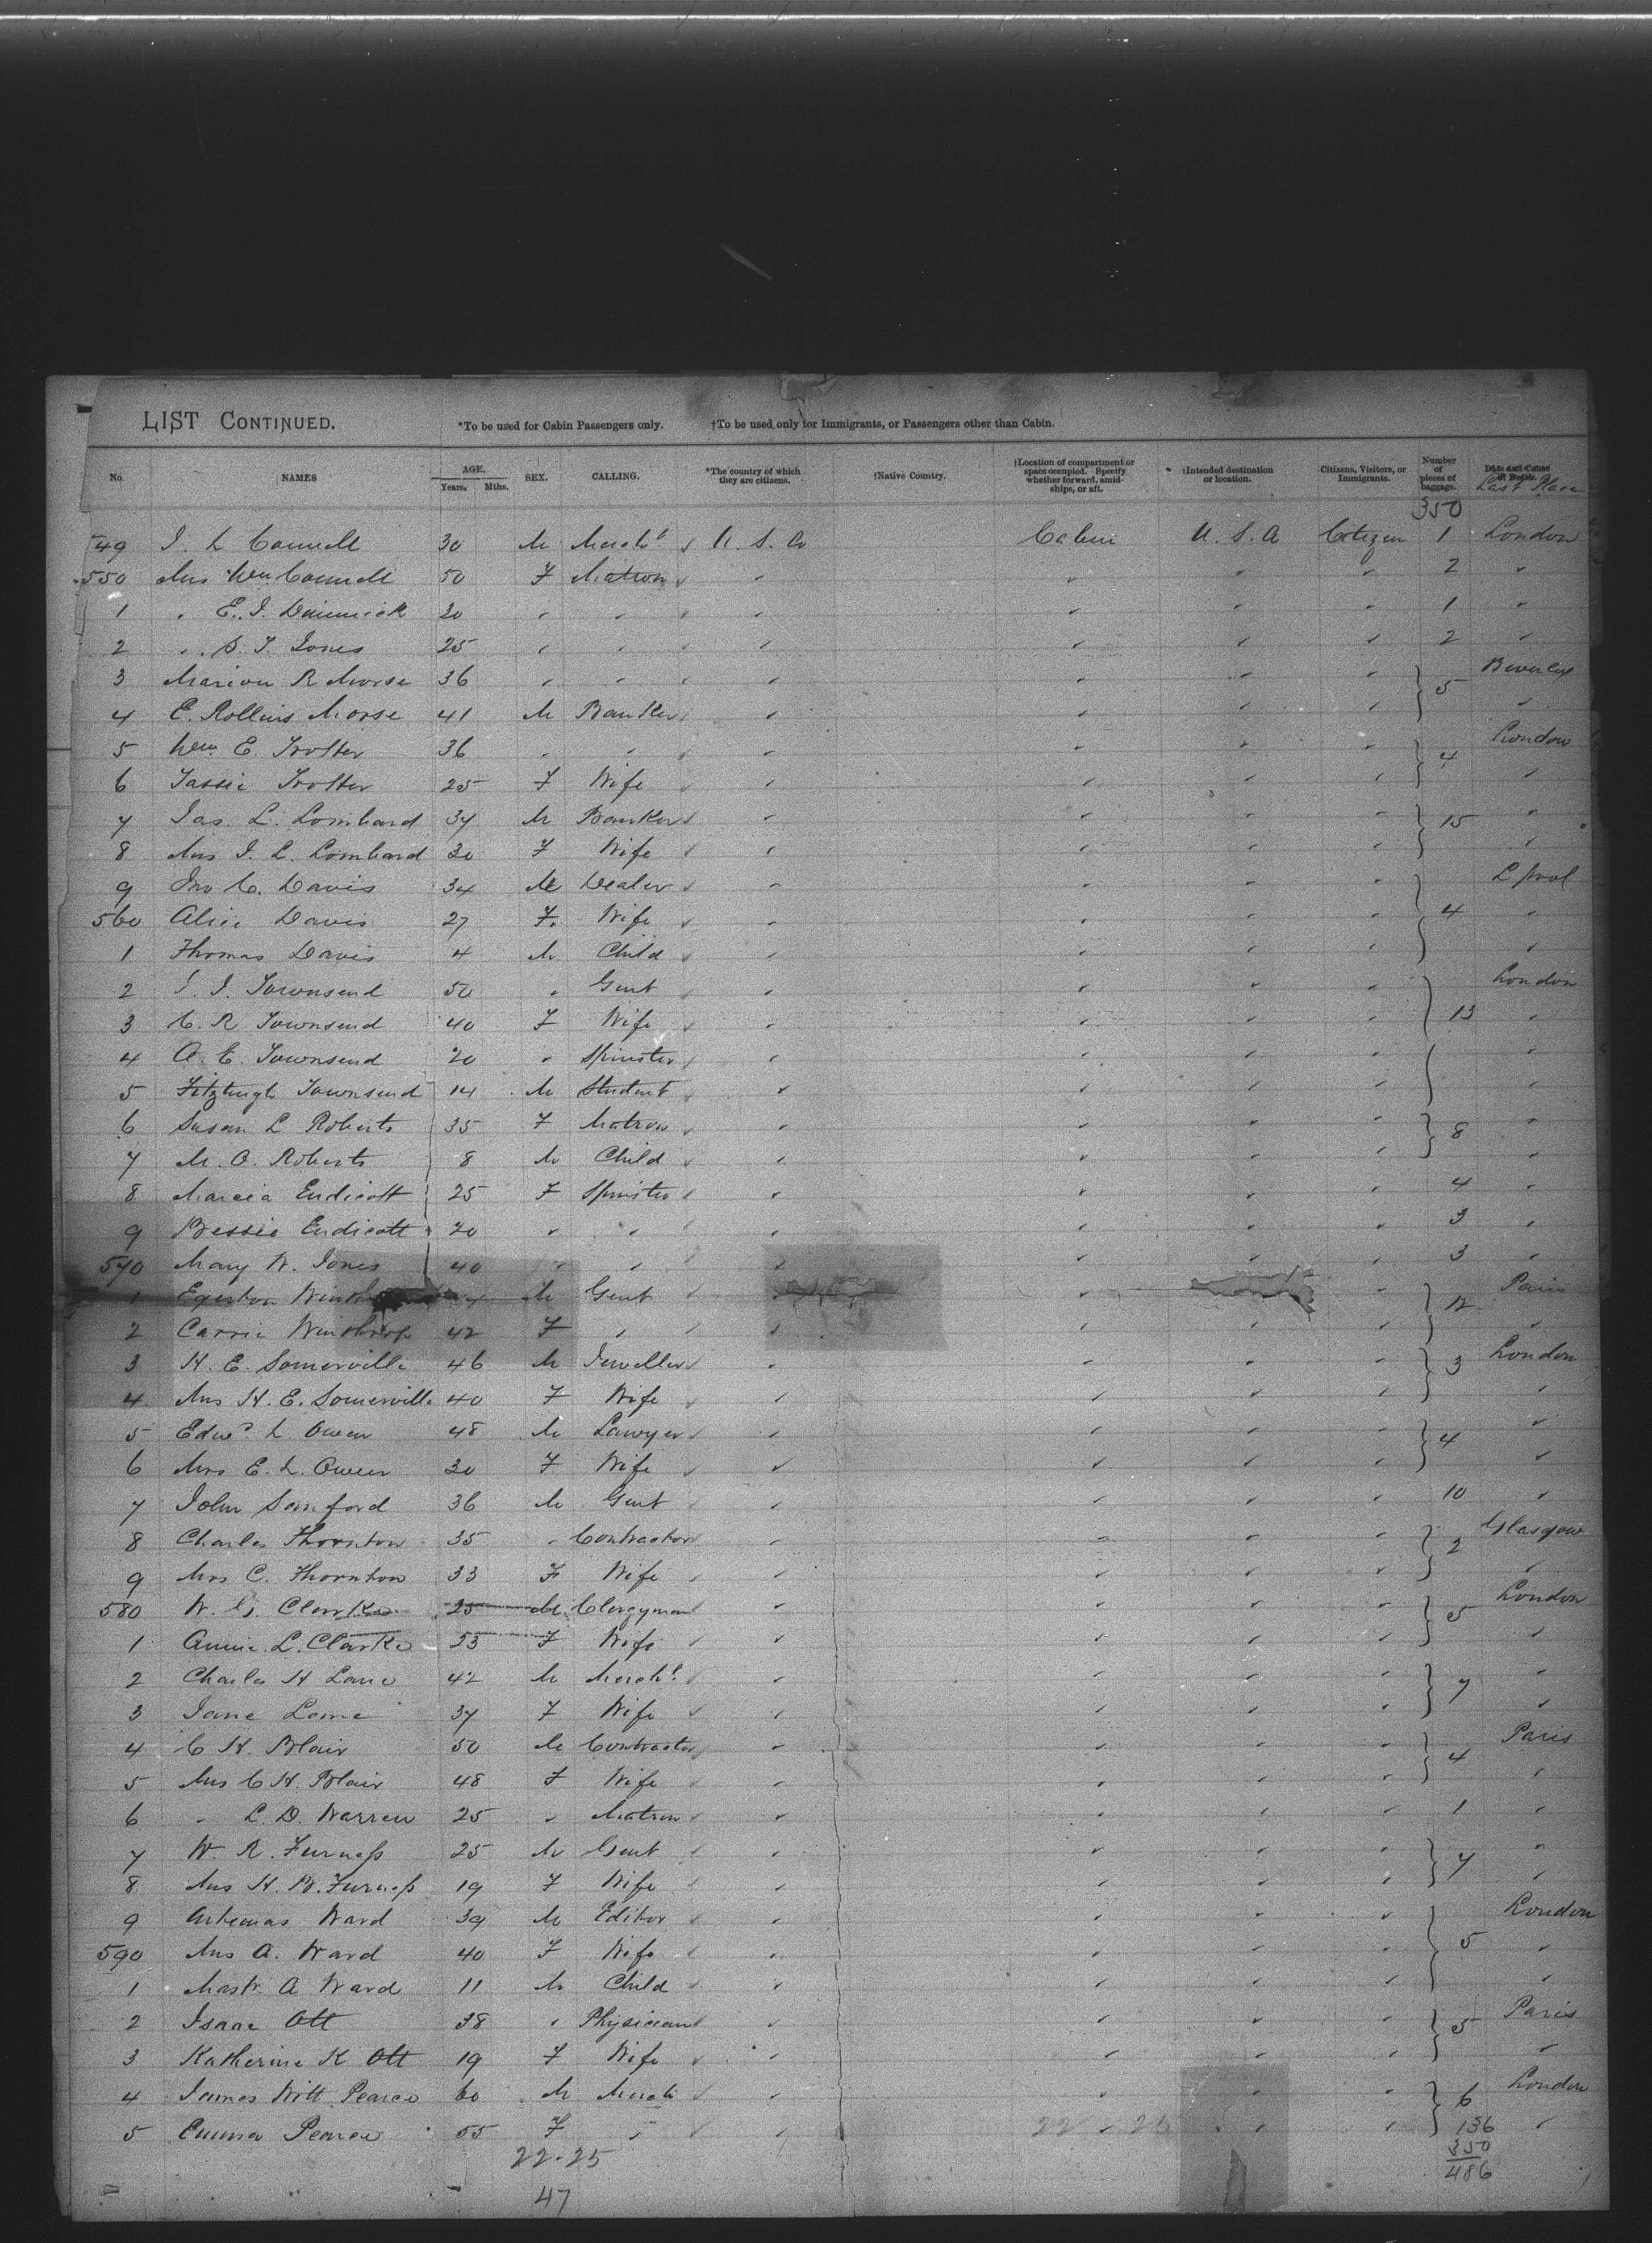 LIST CONTINUED. *To be used for Cabin Passengers only. †To be used only for Immigrants, or Passengers other than Cabin.
No. NAMES AGE. Years. Mths. SEX. CALLING. *The country of which they are citizens. †Native Country. †Location of compartment or space occupied. Specify whether forward, amidships, or aft. †Intended destination or location. Citizens, Visitors, or Immigrants. Number of pieces of baggage. Date and Cause of Death. Last Place
350
549 J. L Connell 30 M Mercht U. S. A Cabin U. S. A Citizen 1 London
550 Mrs Wm Connell 50 F Matron " " " " 2 "
1 " E. J. Dimmick 20 " " " " " " 1 "
2 " S. T. Jones 25 " " " " " " 2 "
3 Marion R Morse 36 " " " " " " 5 Beverley
4 E. Rollins Morse 41 M Banker " " " " "
5 Wm E. Trotter 36 " " " " " " 4 London
6 Tassie Trotter 25 F Wife " " " " "
7 Jas. L. Lombard 37 M Banker " " " " 15 "
8 Mrs J. L. Lombard 30 F Wife " " " " "
9 Jno C. Davis 34 M Dealer " " " " L'pool
560 Alice Davis 27 F. Wife " " " " 4 "
1 Thomas Davis 4 M Child " " " " "
2 J. J. Townsend 50 " Gent " " " " London
3 C. R Townsend 40 F Wife " " " " 13 "
4 A. E. Townsend 20 " Spinster " " " " "
5 Fitzhugh Townsend 14 M Student " " " " "
6 Susan L Roberts 35 F Matron " " " " 8 "
7 M. O. Roberts 8 M Child " " " " "
8 Marcia Endicott 25 F Spinster " " " " 4 "
9 Bessie Endicott 20 " " " " " " 3 "
570 Mary W. Jones 40 " " " " " " 3 "
1 Egerton M Gent " " " " 12 Paris
2 Carrie Winthrop 42 F " " " " " "
3 H. E. Somerville 46 M Jeweller " " " " 3 London
4 Mrs H. E. Somerville 40 F Wife " " " " "
5 Edwd L Owen 48 M Lawyer " " " " 4 "
6 Mrs E. L. Owen 30 F Wife " " " " "
7 John Samford 36 M Gent " " " " 10 "
8 Charles Thornton 35 " Contractor " " " " 2 Glasgow
9 Mrs C. Thornton 33 F Wife " " " " "
580 W. G. Clarke 25 M Clergyman " " " " 5 London
1 Annie L. Clarke 23 F Wife " " " " "
2 Charles H Lane 42 M Mercht. " " " " 7 "
3 Jane Lane 37 F Wife " " " " "
4 C H. Blair 50 M Contractor " " " " 4 Paris
5 Mrs C H. Blair 48 F Wife " " " " "
6 " L. D. Warren 25 " Matron " " " " 1 "
7 W. R. Furness 25 M Gent " " " " 7 "
8 Mrs H. B. Furness 19 F Wife " " " " "
9 Artemas Ward 39 M Editor " " " " London
590 Mrs A. Ward 40 F Wife " " " " 5 "
1 Mastr A Ward 11 M Child " " " " "
2 Isaac Ott 38 " Physician " " " " 5 Paris
3 Katherine K Ott 19 F Wife " " " " "
4 James Witt Pearce 60 M Mercht " " " " 6 London
5 Emma Pearce 55 F " " 22 " 25 " " 136 "
22-25 350
47 486